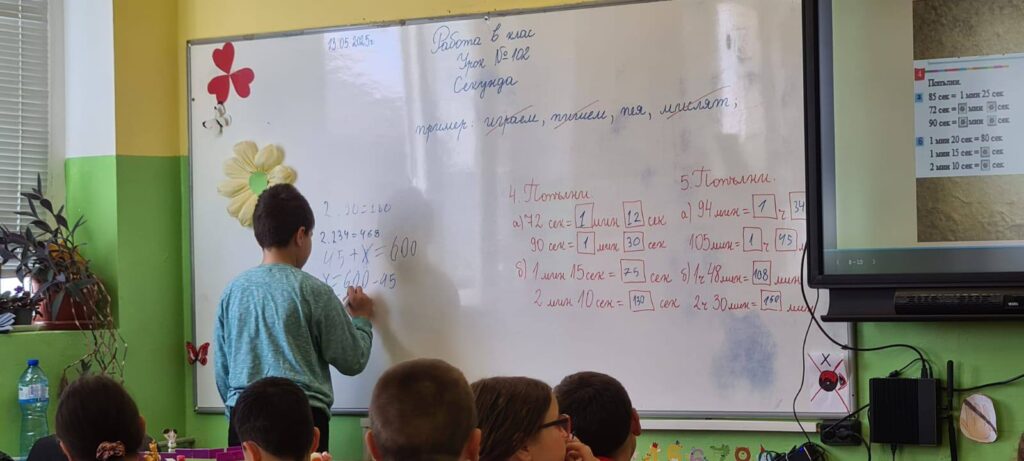 13.05.2025г
Работа в клас
Урок № 102
Секунда
пример: играем, пишем, пея, мислят,
2.90=180
2.234=468
45+x=600
x=600-45
4. Попълни.
а) 72 сек= 1 мин 12 сек
90 сек= 1 мин 30 сек
б) 1 мин 15 сек= 75 сек
2 мин 10 сек= 130 сек
5. Попълни.
а) 94 мин= 1 ч 34
105 мин= 1 ч 45 мин
б) 1ч 48 мин= 108 мин
2ч 30 мин= 150 мин
4
Попълни.
а 85 сек = 1 мин 25 сек
72 сек = мин сек
90 сек = мин сек
б 1 мин 20 сек = 80 сек
1 мин 15 сек = сек
2 мин 10 сек = сек
x